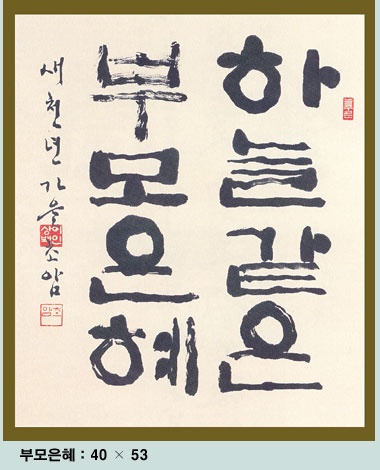 하늘같은
부모은혜
새천년 가을 초암
초암
부모은혜 : 40 × 53